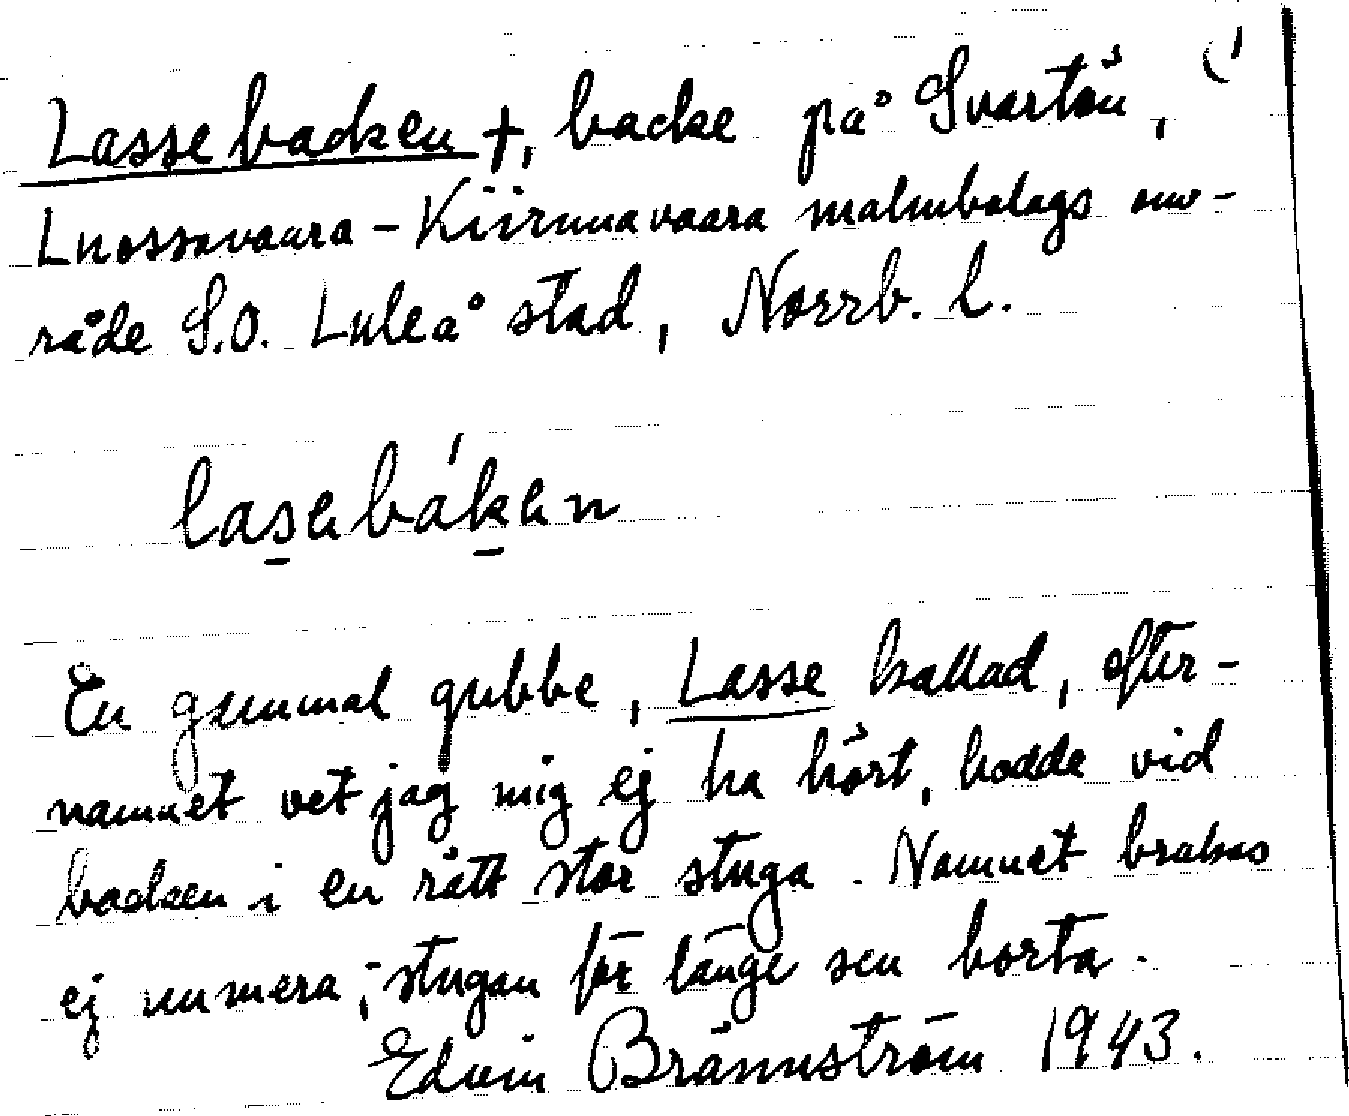 Lassebacken †, backe på Svartön,
Luossavaara-Kiirunavaara malmbolags om-
råde S.O. Luleå stad, Norrb. l.
lasebáken
En gammal gubbe, Lasse kallad, efter-
namnet vet jag mig ej ha hört, bodde vid
backen i en rätt stor stuga. Namnet brukas
ej numera; stugan för länge sen borta.
Edvin Brännström 1943.